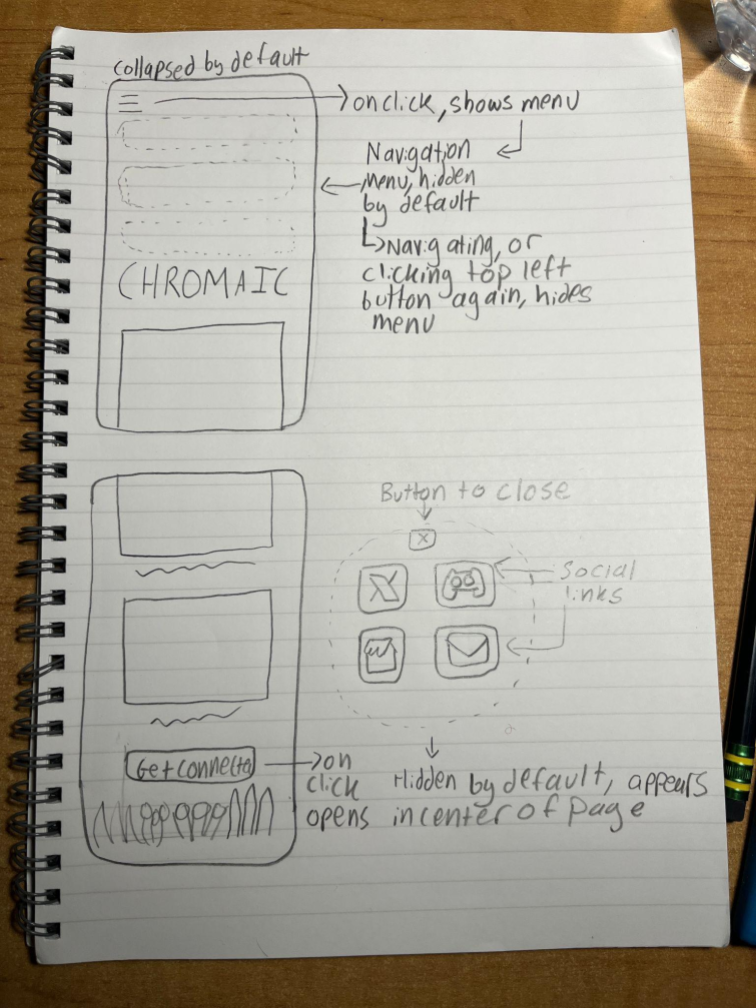 collapsed by default
onclick, shows menu
Navigation
Menu, hidden
by default
Navigating, or
clicking top left
button again, hides
menu
CHROMAIC
Button to close
x
X
Social
links
Get connected
on
click
opens
Hidden by default, appears
in center of page